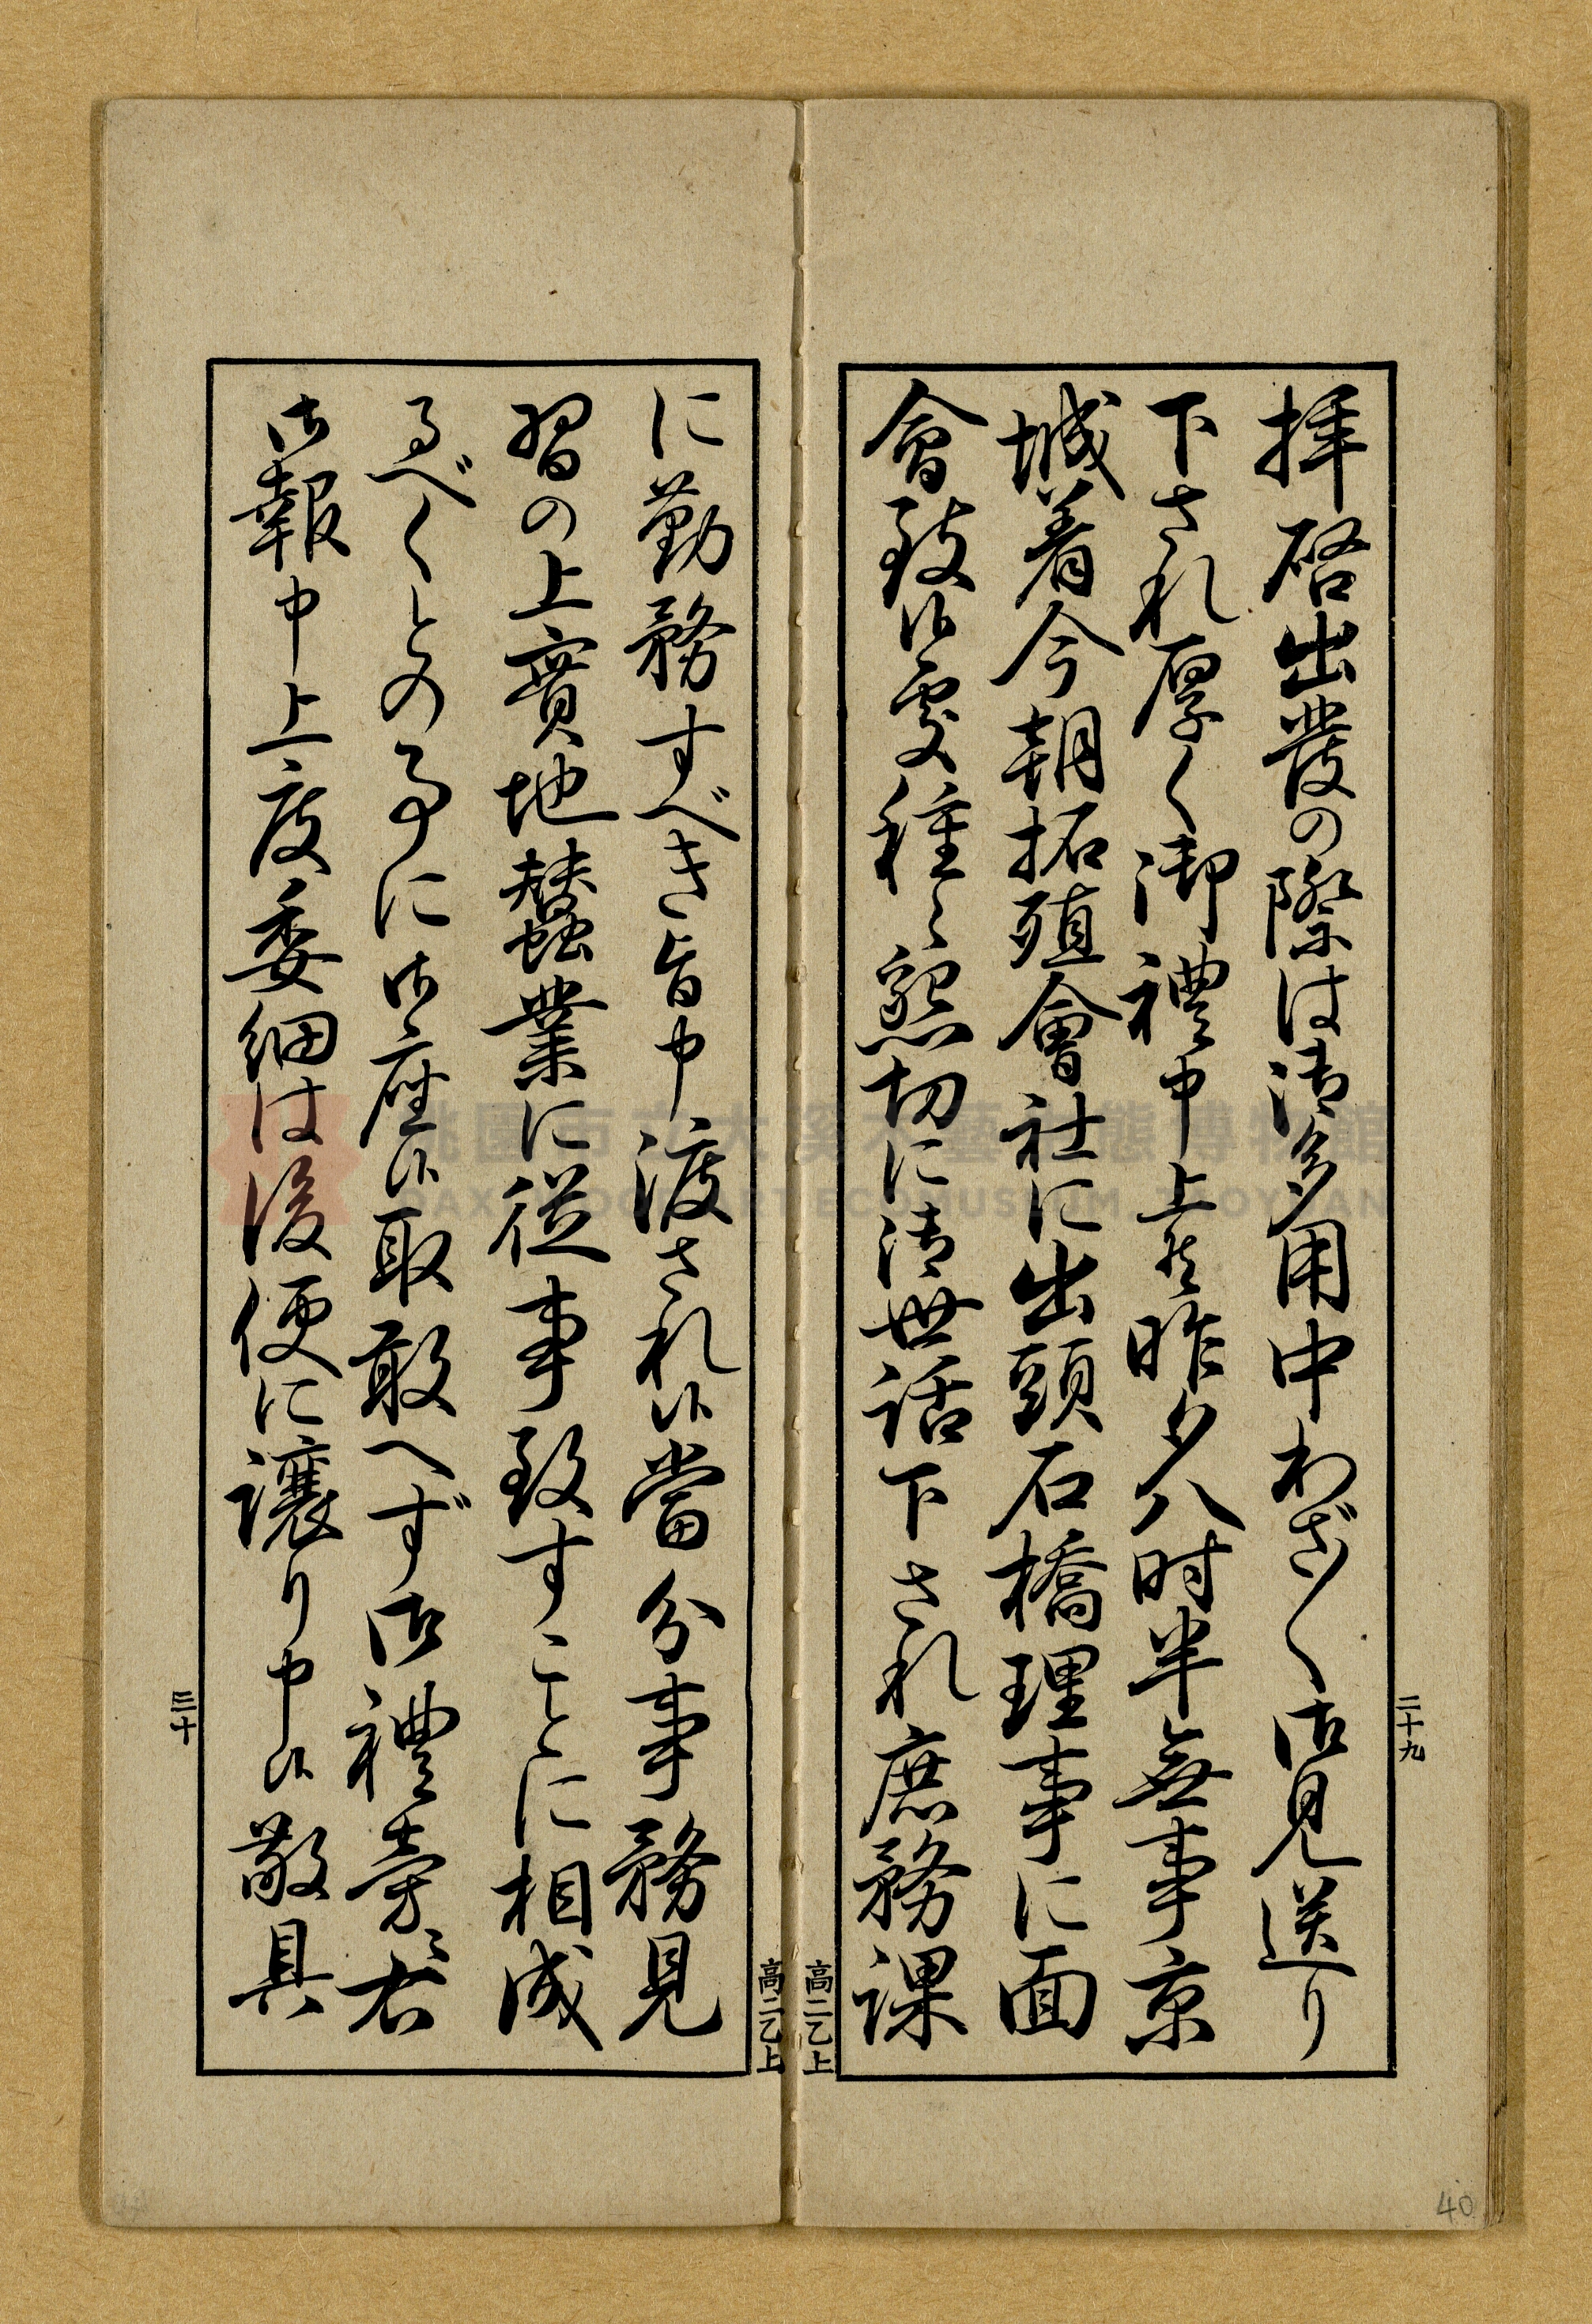 二十九
拝啓出發の際は御多用中わざ〳〵御見送り
下され厚く御禮申上候昨夕八时半無事京
城着今朝拓殖會社に出頭石橋理事に面
會致候處種々懇切に御世話下され庶務課
高二乙上
高二乙上
に勤務すべき旨申渡され候當分事務見
習の上實地蠶業に従事致すことに相成
るべくとの事に御座候取敢へず御禮旁々右
御報申上度委細は後便に譲り申候敬具
三十
40
桃園市立大溪木藝生態博物館
DAXI WOOD ART ECOMUSEUM, TAOYUAN